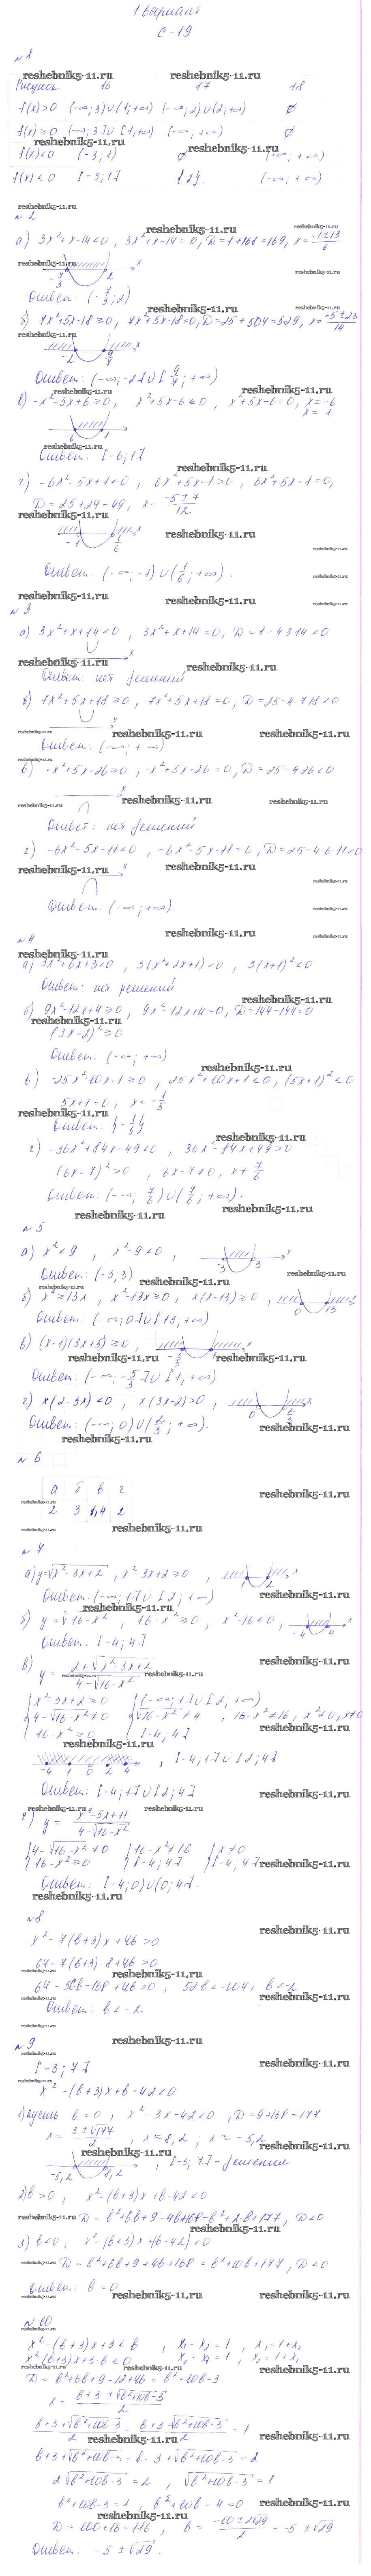 1 вариант
С-19
№1
Рисунок 16 17 18
f(x)>0 (-∞;-3)∪(1;+∞) (-∞;2)∪(2;+∞) ∅
f(x)≥0 (-∞;-3]∪[1;+∞) (-∞;+∞) ∅
f(x)<0 (-3;1) ∅ (-∞;+∞)
f(x)≤0 [-3;1] {2}. (-∞;+∞)
№2
а) 3x²+x-14<0, 3x²+x-14=0, D=1+168=169, x=(-1±13)/6
-7/3 2 x
Ответ: (-7/3;2)
б) 7x²+5x-18≥0, 7x²+5x-18=0, D=25+504=529, x=(-5±23)/14
-2 9/7 x
Ответ: (-∞;-2]∪[9/7;+∞)
в) -x²-5x+6≥0, x²+5x-6≤0, x²+5x-6=0, x=-6
x=1
-6 1 x
Ответ: [-6;1]
г) -6x²-5x+1<0, 6x²+5x-1>0, 6x²+5x-1=0,
D=25+24=49, x=(-5±7)/12
-1 1/6 x
Ответ: (-∞;-1)∪(1/6;+∞).
№3
а) 3x²+x+14<0, 3x²+x+14=0, D=1-4·3·14<0
x
Ответ: нет решений
б) 7x²+5x+18≥0, 7x²+5x+18=0, D=25-4·7·18<0
x
Ответ: (-∞;+∞)
в) -x²+5x-26≥0, -x²+5x-26=0, D=25-4·26<0
x
Ответ: нет решений
г) -6x²-5x-11<0, -6x²-5x-11=0, D=25-4·6·11<0
x
Ответ: (-∞;+∞).
№4
а) 3x²+6x+3<0, 3(x²+2x+1)<0, 3(x+1)²<0
Ответ: нет решений
б) 9x²-12x+4≥0, 9x²-12x+4=0, D=144-144=0
(3x-2)²≥0
Ответ: (-∞;+∞)
в) -25x²-10x-1≥0, 25x²+10x+1≤0, (5x+1)²≤0
5x+1=0, x=-1/5
Ответ: {-1/5}
г) -36x²+84x-49<0, 36x²-84x+49>0
(6x-7)²>0, 6x-7≠0, x≠7/6
Ответ: (-∞;7/6)∪(7/6;+∞).
№5
а) x²<9, x²-9<0, -3 3 x
Ответ: (-3;3)
б) x²≥13x, x²-13x≥0, x(x-13)≥0, 0 13 x
Ответ: (-∞;0]∪[13;+∞)
в) (x-1)(3x+5)≥0, -5/3 1 x
Ответ: (-∞;-5/3]∪[1;+∞)
г) x(2-3x)<0, x(3x-2)>0, 0 2/3 x
Ответ: (-∞;0)∪(2/3;+∞).
№6
а б в г
2 3 1,4 2
№7
а) y=√(x²-3x+2), x²-3x+2≥0, 1 2 x
Ответ: (-∞;1]∪[2;+∞)
б) y=√(16-x²), 16-x²≥0, x²-16≤0, -4 4 x
Ответ: [-4;4]
в) y=(2+√(x²-3x+2))/(4-√(16-x²))
{x²-3x+2≥0 {(-∞;1]∪[2;+∞)
{4-√(16-x²)≠0 {√(16-x²)≠4, 16-x²≠16, x²≠0, x≠0
{16-x²≥0 {[-4;4]
-4 1 0 2 4, [-4;1]∪[2;4]
Ответ: [-4;1]∪[2;4]
г) y=(x²-5x+11)/(4-√(16-x²))
{4-√(16-x²)≠0 {16-x²≠16 {x≠0
{16-x²≥0 {[-4;4] {[-4;4]
Ответ: [-4;0)∪(0;4].
№8
x²-7(b+3)x+4b>0
64-7(b+3)·8+4b>0
64-56b-168+4b>0, 52b<-104, b<-2
Ответ: b<-2
№9
[-3;7]
x²-(b+3)x+b-42<0
1) пусть b=0, x²-3x-42<0, D=9+168=177
x=(3±√177)/2, x≈8,2; x≈-5,2
-5,2 8,2 x, [-3;7]-решения
2) b>0, x²-(b+3)x+b-42<0
D=b²+6b+9-4b+168=b²+2b+177, D<0
3) b<0, x²-(b+3)x+(b-42)<0
D=b²+6b+9+4b+168=b²+10b+177, D<0
Ответ: b=0
№10
x²-(b+3)x+3<b, x₁-x₂=1, x₁=1+x₂
x²-(b+3)x+3-b<0 x₂-x₁=1, x₂=1+x₁
D=b²+6b+9-12+4b=b²+10b-3
x=(b+3±√(b²+10b-3))/2
(b+3+√(b²+10b-3))/2-(b+3-√(b²+10b-3))/2=1
b+3+√(b²+10b-3)-b-3+√(b²+10b-3)=2
2√(b²+10b-3)=2, √(b²+10b-3)=1
b²+10b-3=1, b²+10b-4=0
D=100+16=116, b=(-10±2√29)/2=-5±√29
Ответ: -5±√29.